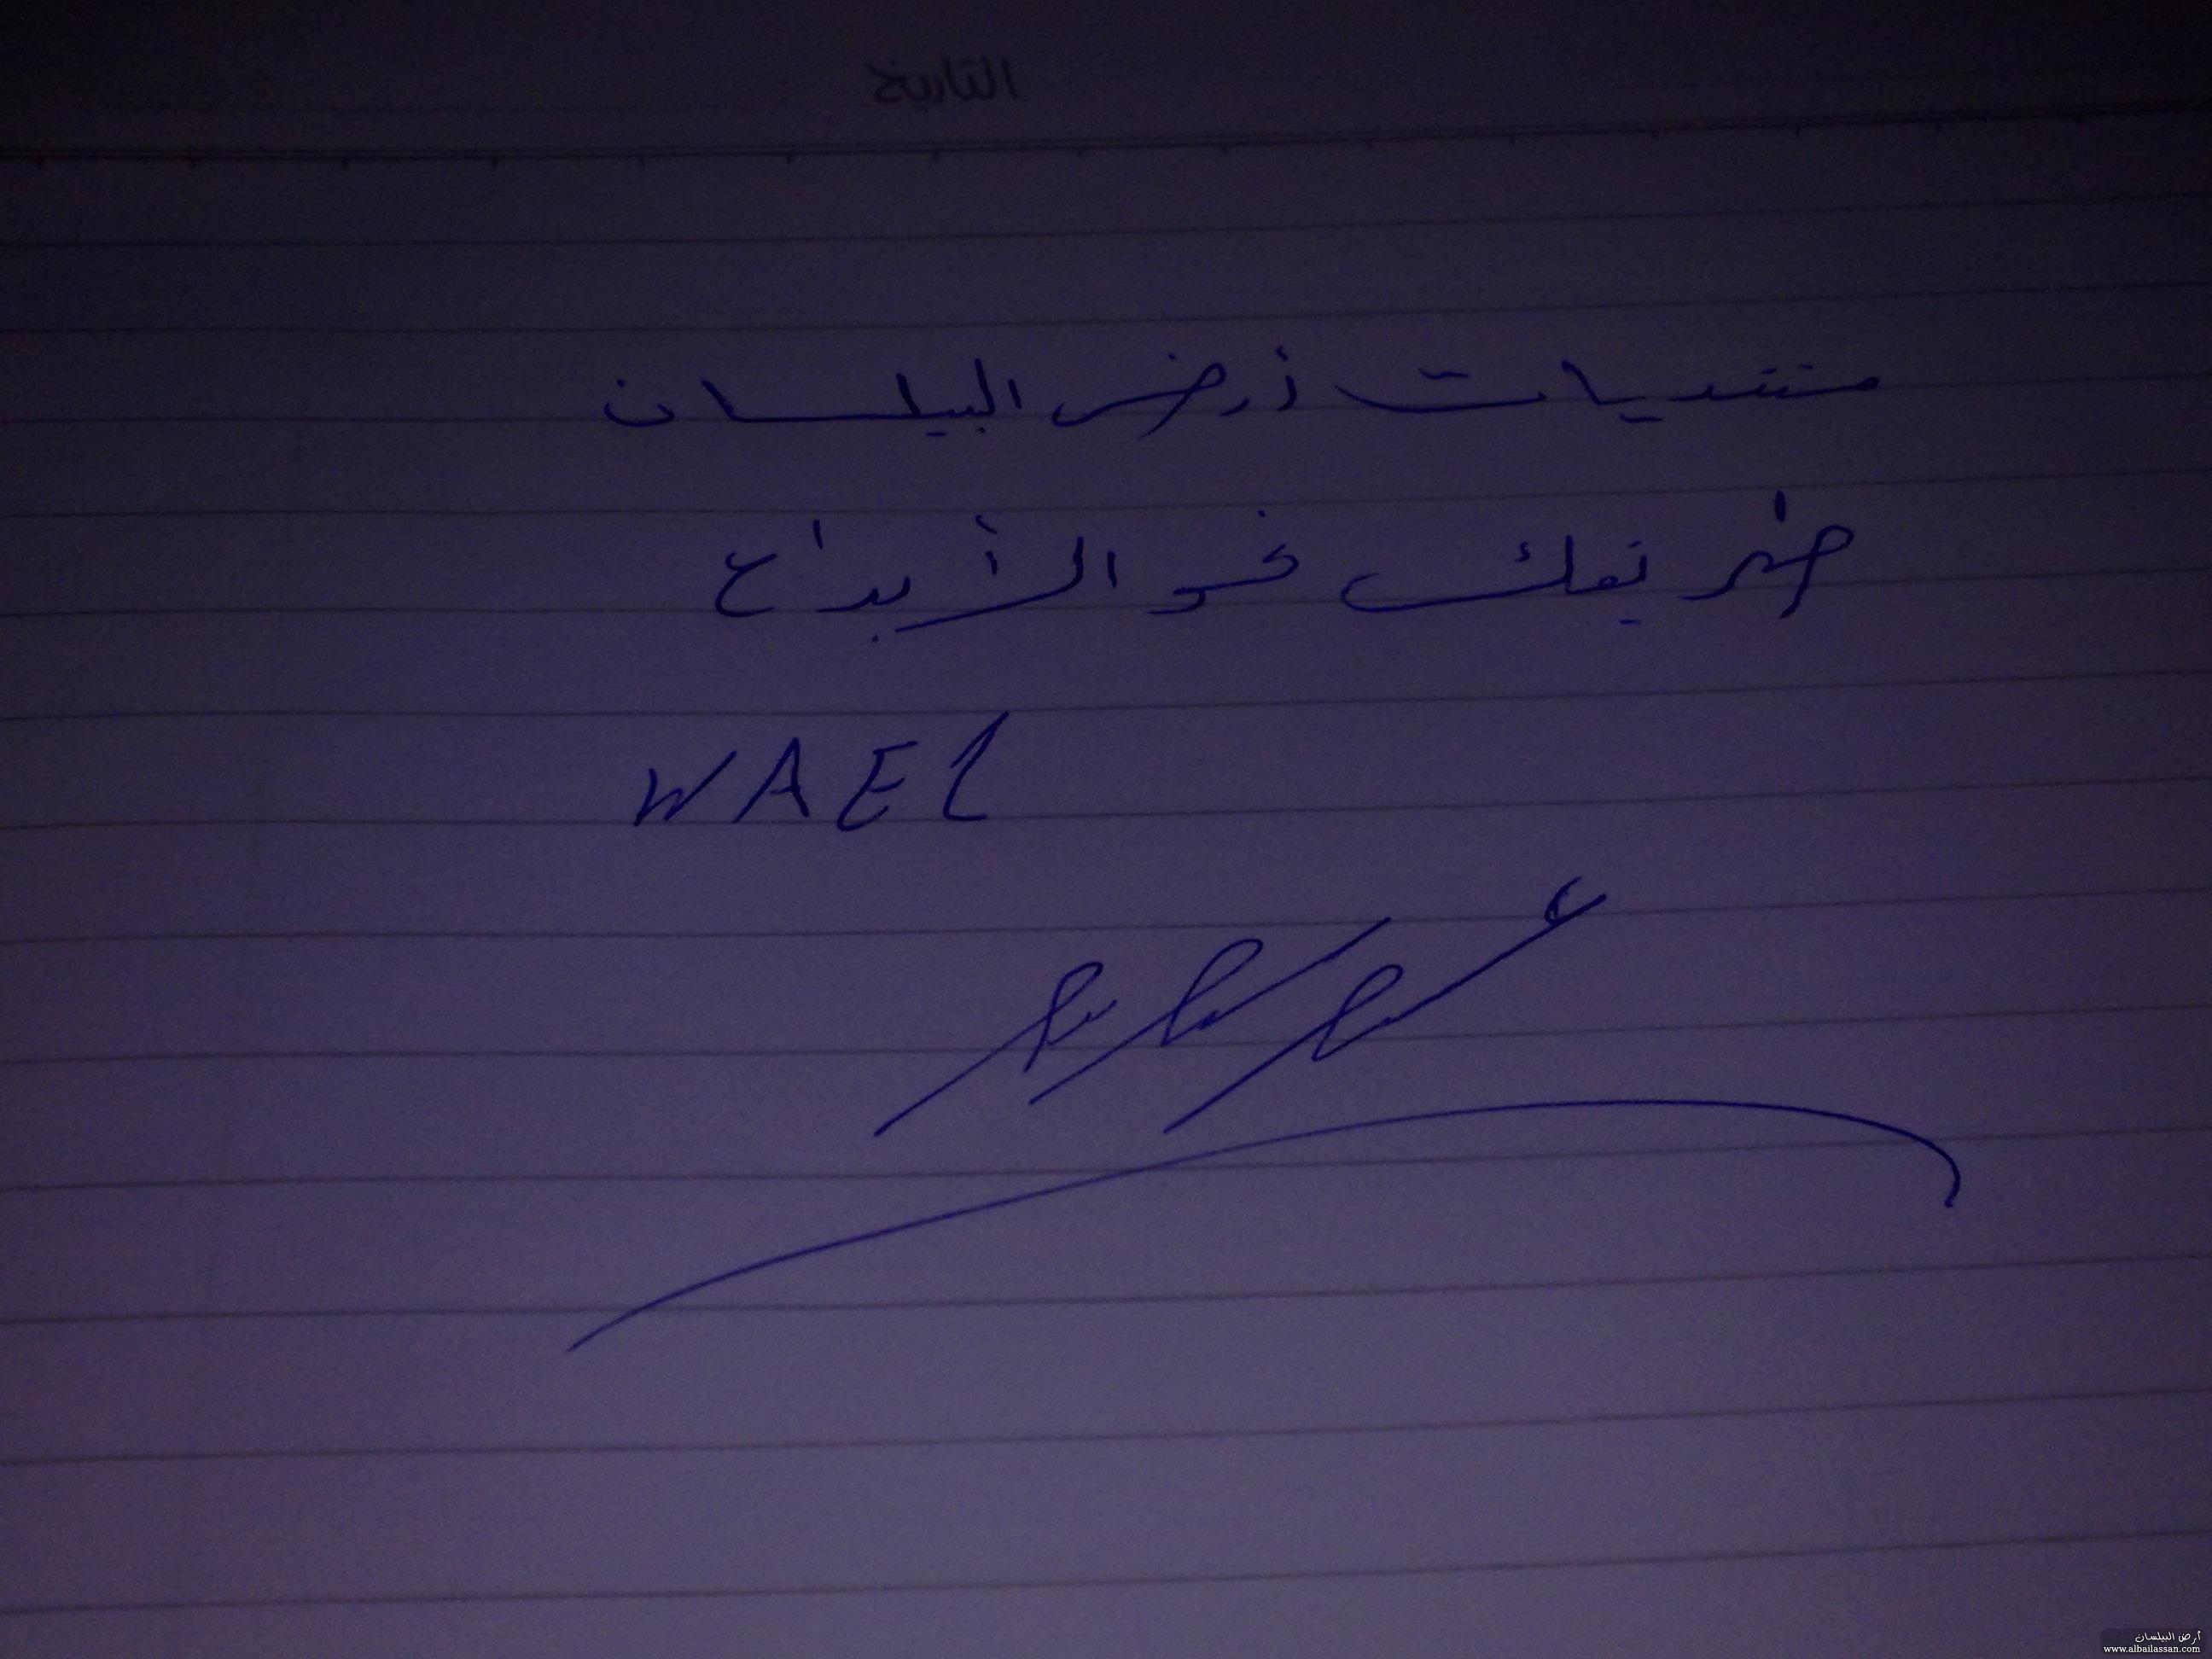 التاريخ :
منتديات أرض البيلسان
طريقك نحو الأبداع
WAEL
أرض البيلسان
www.albailassan.com